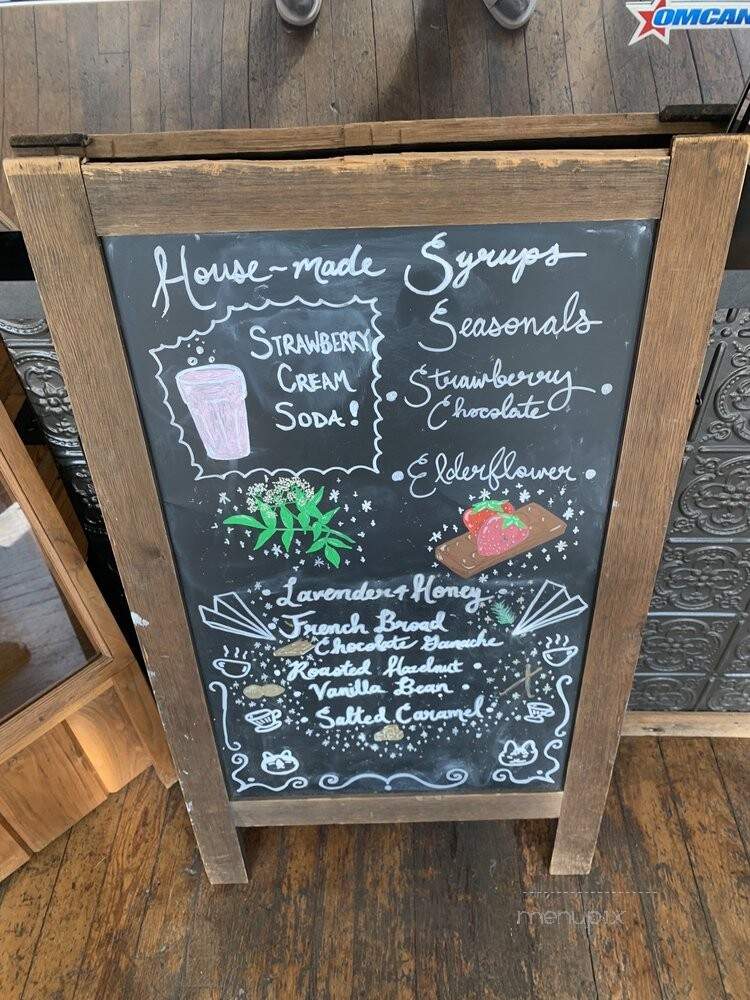 OMCAN
House-made Syrups
STRAWBERRY
CREAM
SODA!
Seasonals
• Strawberry •
Chocolate
• Elderflower •
• Lavender & Honey •
• French Broad
Chocolate Ganache •
Roasted Hazelnut •
Vanilla Bean •
• Salted Caramel •
menupix